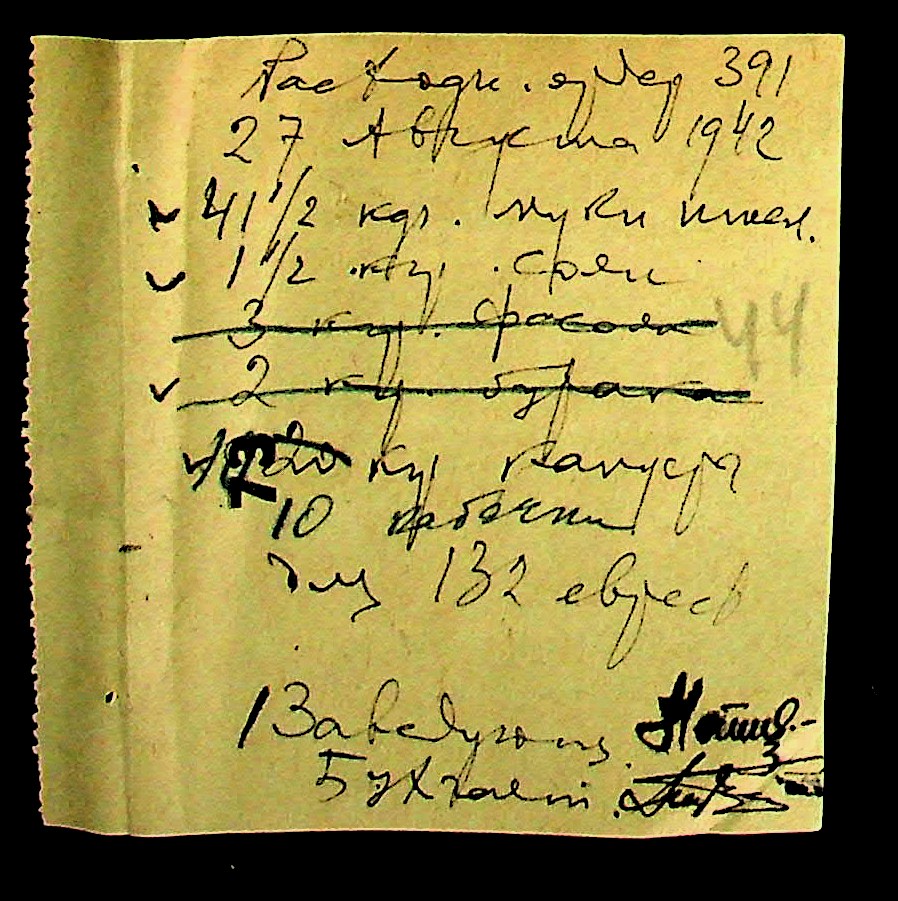 Расходн. ордер 391
27 Августа 1942
41 1/2 кгр. муки пшен.
1 1/2 кгр. соли
3 кгр. фасоли
44
2 кгр. бурака
кгр капусты
73
10 кабачки
для 132 евреев
Заведующ.
Бухгалт.